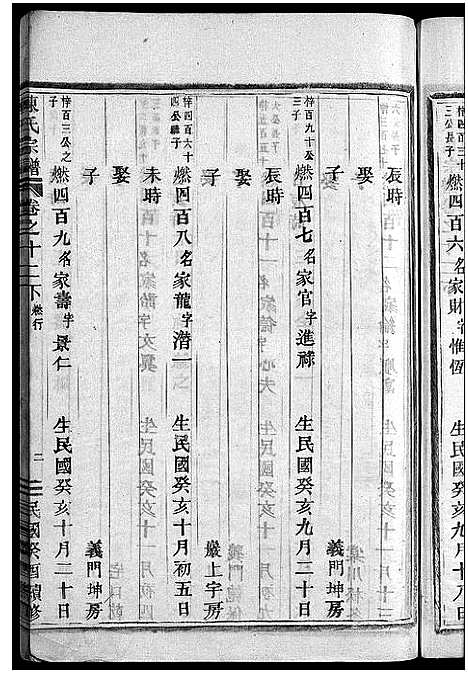 梓四百三十三公長子
燃四百六名家財字惟恆 生民國癸亥九月十八日
辰時
娶
子 義門坤房
梓百九十公子
燃四百七名家官字進祿 生民國癸亥九月二十日
辰時
娶
子 嚴上字房
梓四百六十四公繼子
燃四百八名家龍字潛一 生民國癸亥十月初五日
未時
娶
子 義門坤房
梓百三公之子
燃四百九名家壽字景仁 生民國癸亥十月二十日
陳氏宗譜 卷之十二下 燃行 二 民國癸酉續修